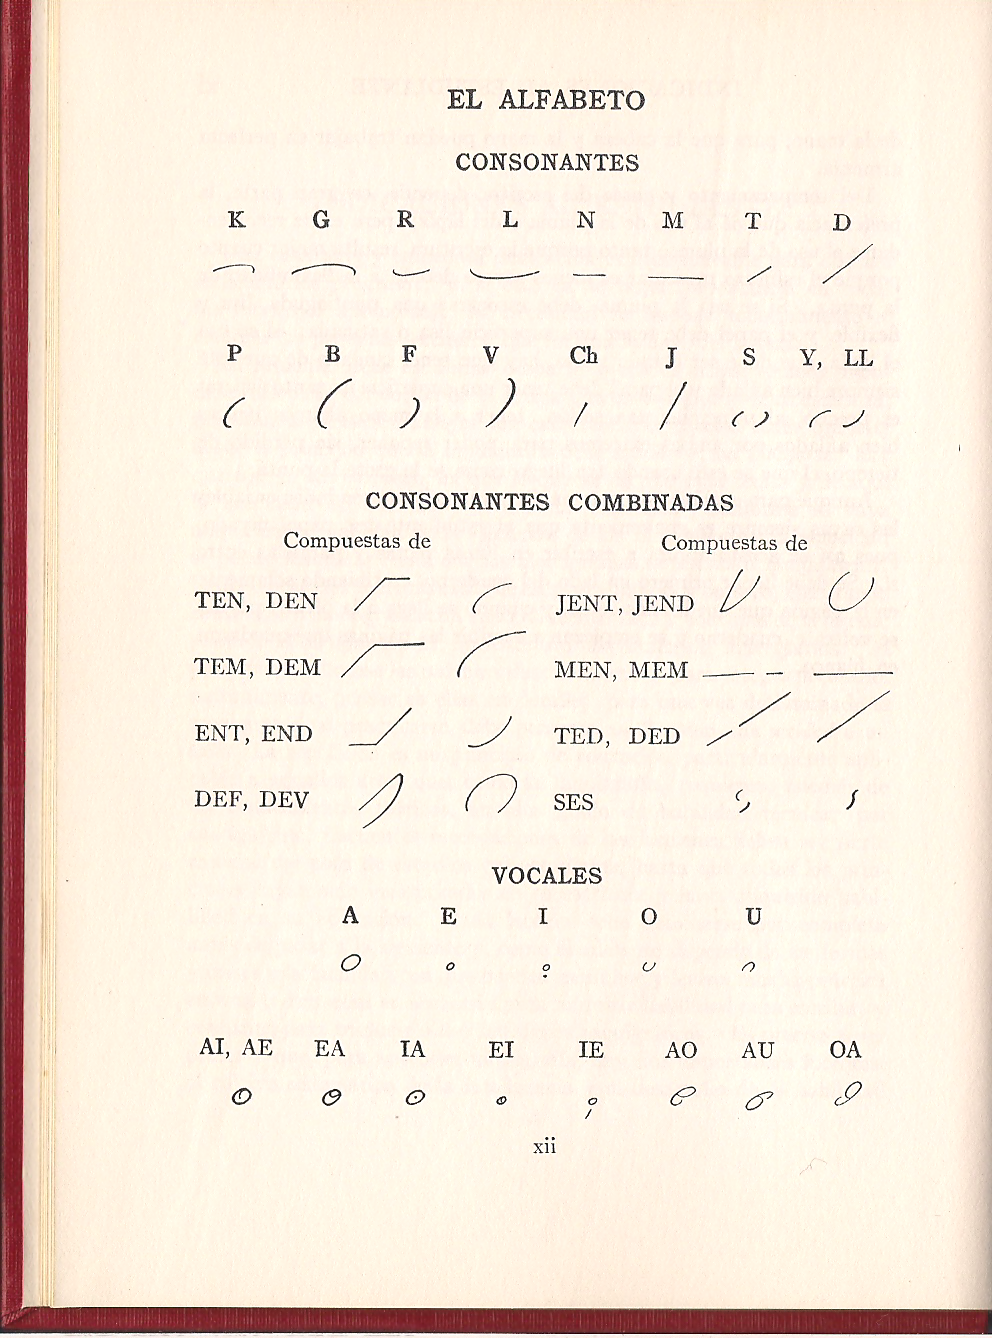 EL ALFABETO
CONSONANTES
K G R L N M T D
P B F V Ch J S Y, LL
CONSONANTES COMBINADAS
Compuestas de Compuestas de
TEN, DEN JENT, JEND
TEM, DEM MEN, MEM
ENT, END TED, DED
DEF, DEV SES
VOCALES
A E I O U
AI, AE EA IA EI IE AO AU OA
xii